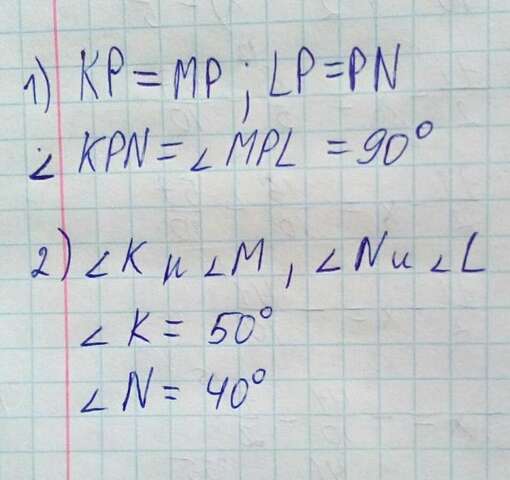 1) KP = MP ; LP = PN
∠ KPN = ∠ MPL = 90°
2) ∠K и ∠M , ∠N и ∠L
∠ K = 50°
∠ N = 40°